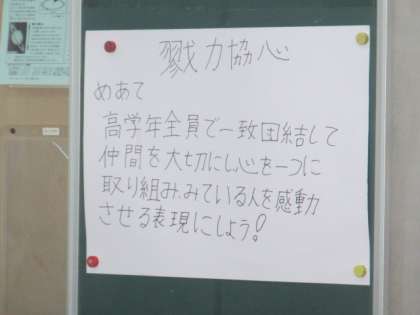 戮力協心
めあて
高学年全員で一致団結して
仲間を大切にし,心を一つに
取り組み,みている人を感動
させる表現にしよう!